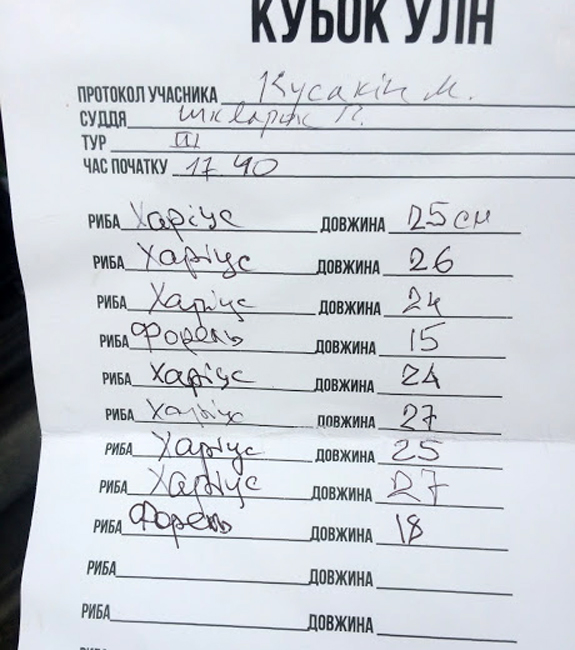 КУБОК УЛН
ПРОТОКОЛ УЧАСНИКА Кусакін М.
СУДДЯ Шкварок П.
ТУР III
ЧАС ПОЧАТКУ 17 40
РИБА Харіус ДОВЖИНА 25 см
РИБА Харіус ДОВЖИНА 26
РИБА Харіус ДОВЖИНА 24
РИБА Форель ДОВЖИНА 15
РИБА Харіус ДОВЖИНА 24
РИБА Харіус ДОВЖИНА 27
РИБА Харіус ДОВЖИНА 25
РИБА Харіус ДОВЖИНА 27
РИБА Форель ДОВЖИНА 18
РИБА ДОВЖИНА
РИБА ДОВЖИНА